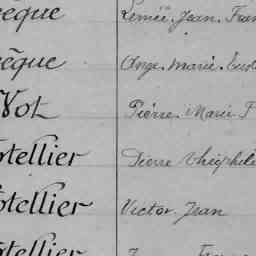 èque Lemée Jean Fran
èque Ange Marie Eusè
Not Pierre Marie F
otellier Pierre Théophile
otellier Victor Jean
otellier